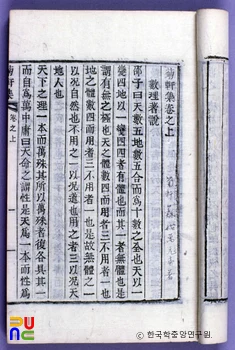 軒集卷之上
數理著說
邵子曰天數五地數五合而爲十數之全也天以一
變四地以一變四四者有體也而其一者無體也是
謂有無之極也天之體數四而用者三不用者一也
地之體數四而用者三不用者一也是故無體之一
以况自然也不用之一以况道也用之者三以况天
地人也
天下之理一本而萬殊其所以萬殊者復各具其一
而自爲萬中庸曰天命之謂性是天爲一本而性爲
軒集 卷之上 一
PUNC
ⓒ 한국학중앙연구원